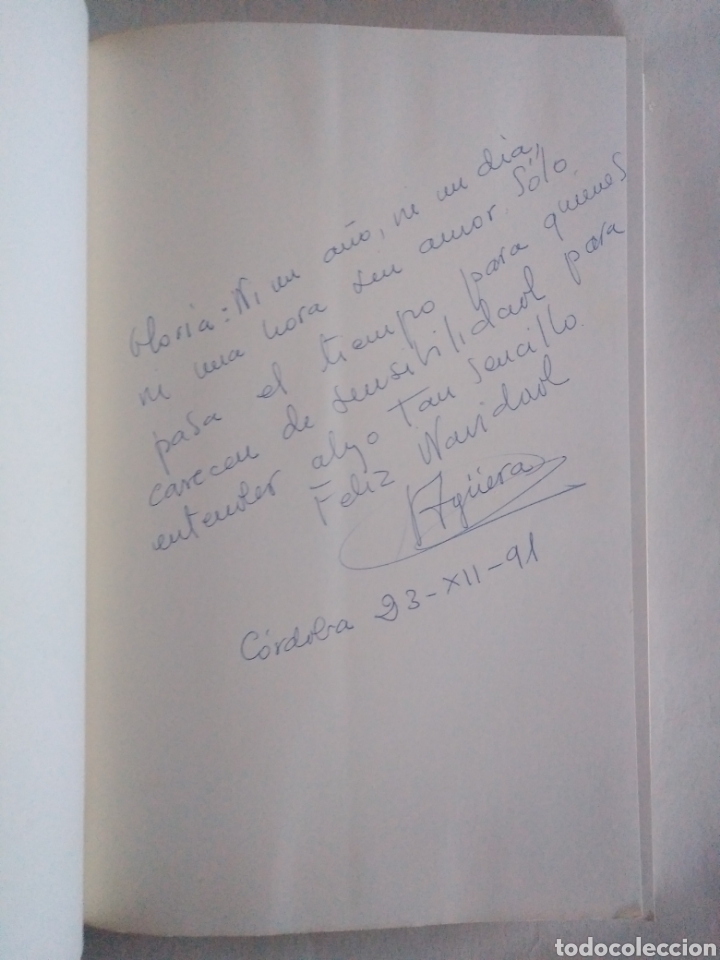 Gloria: Ni un año, ni un dia,
ni una hora sin amor. Sólo
pasa el tiempo para quienes
carecen de sensibilidad para
entender algo tan sencillo.
Feliz Navidad
Agüera
Córdoba 23-XII-91
todocoleccion